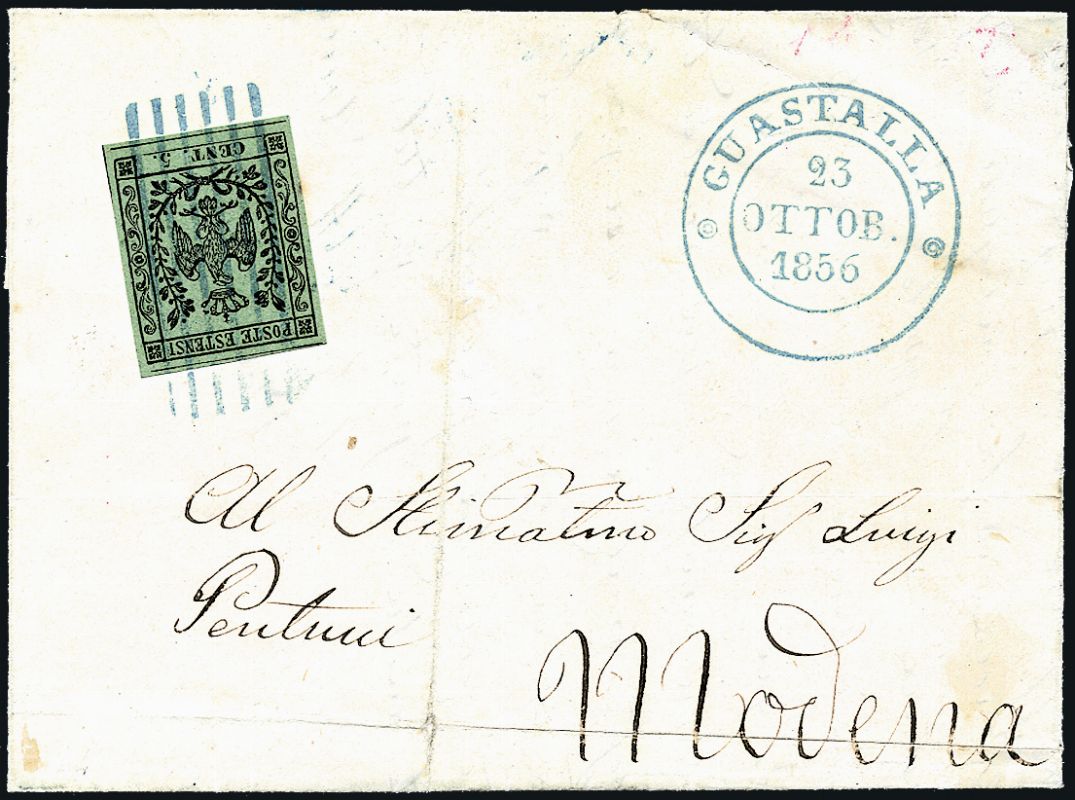 CENT. 5.
POSTE ESTENSI
GUASTALLA
23
OTTOB.
1856
Al Stimatmo Sig Luigi
Modena